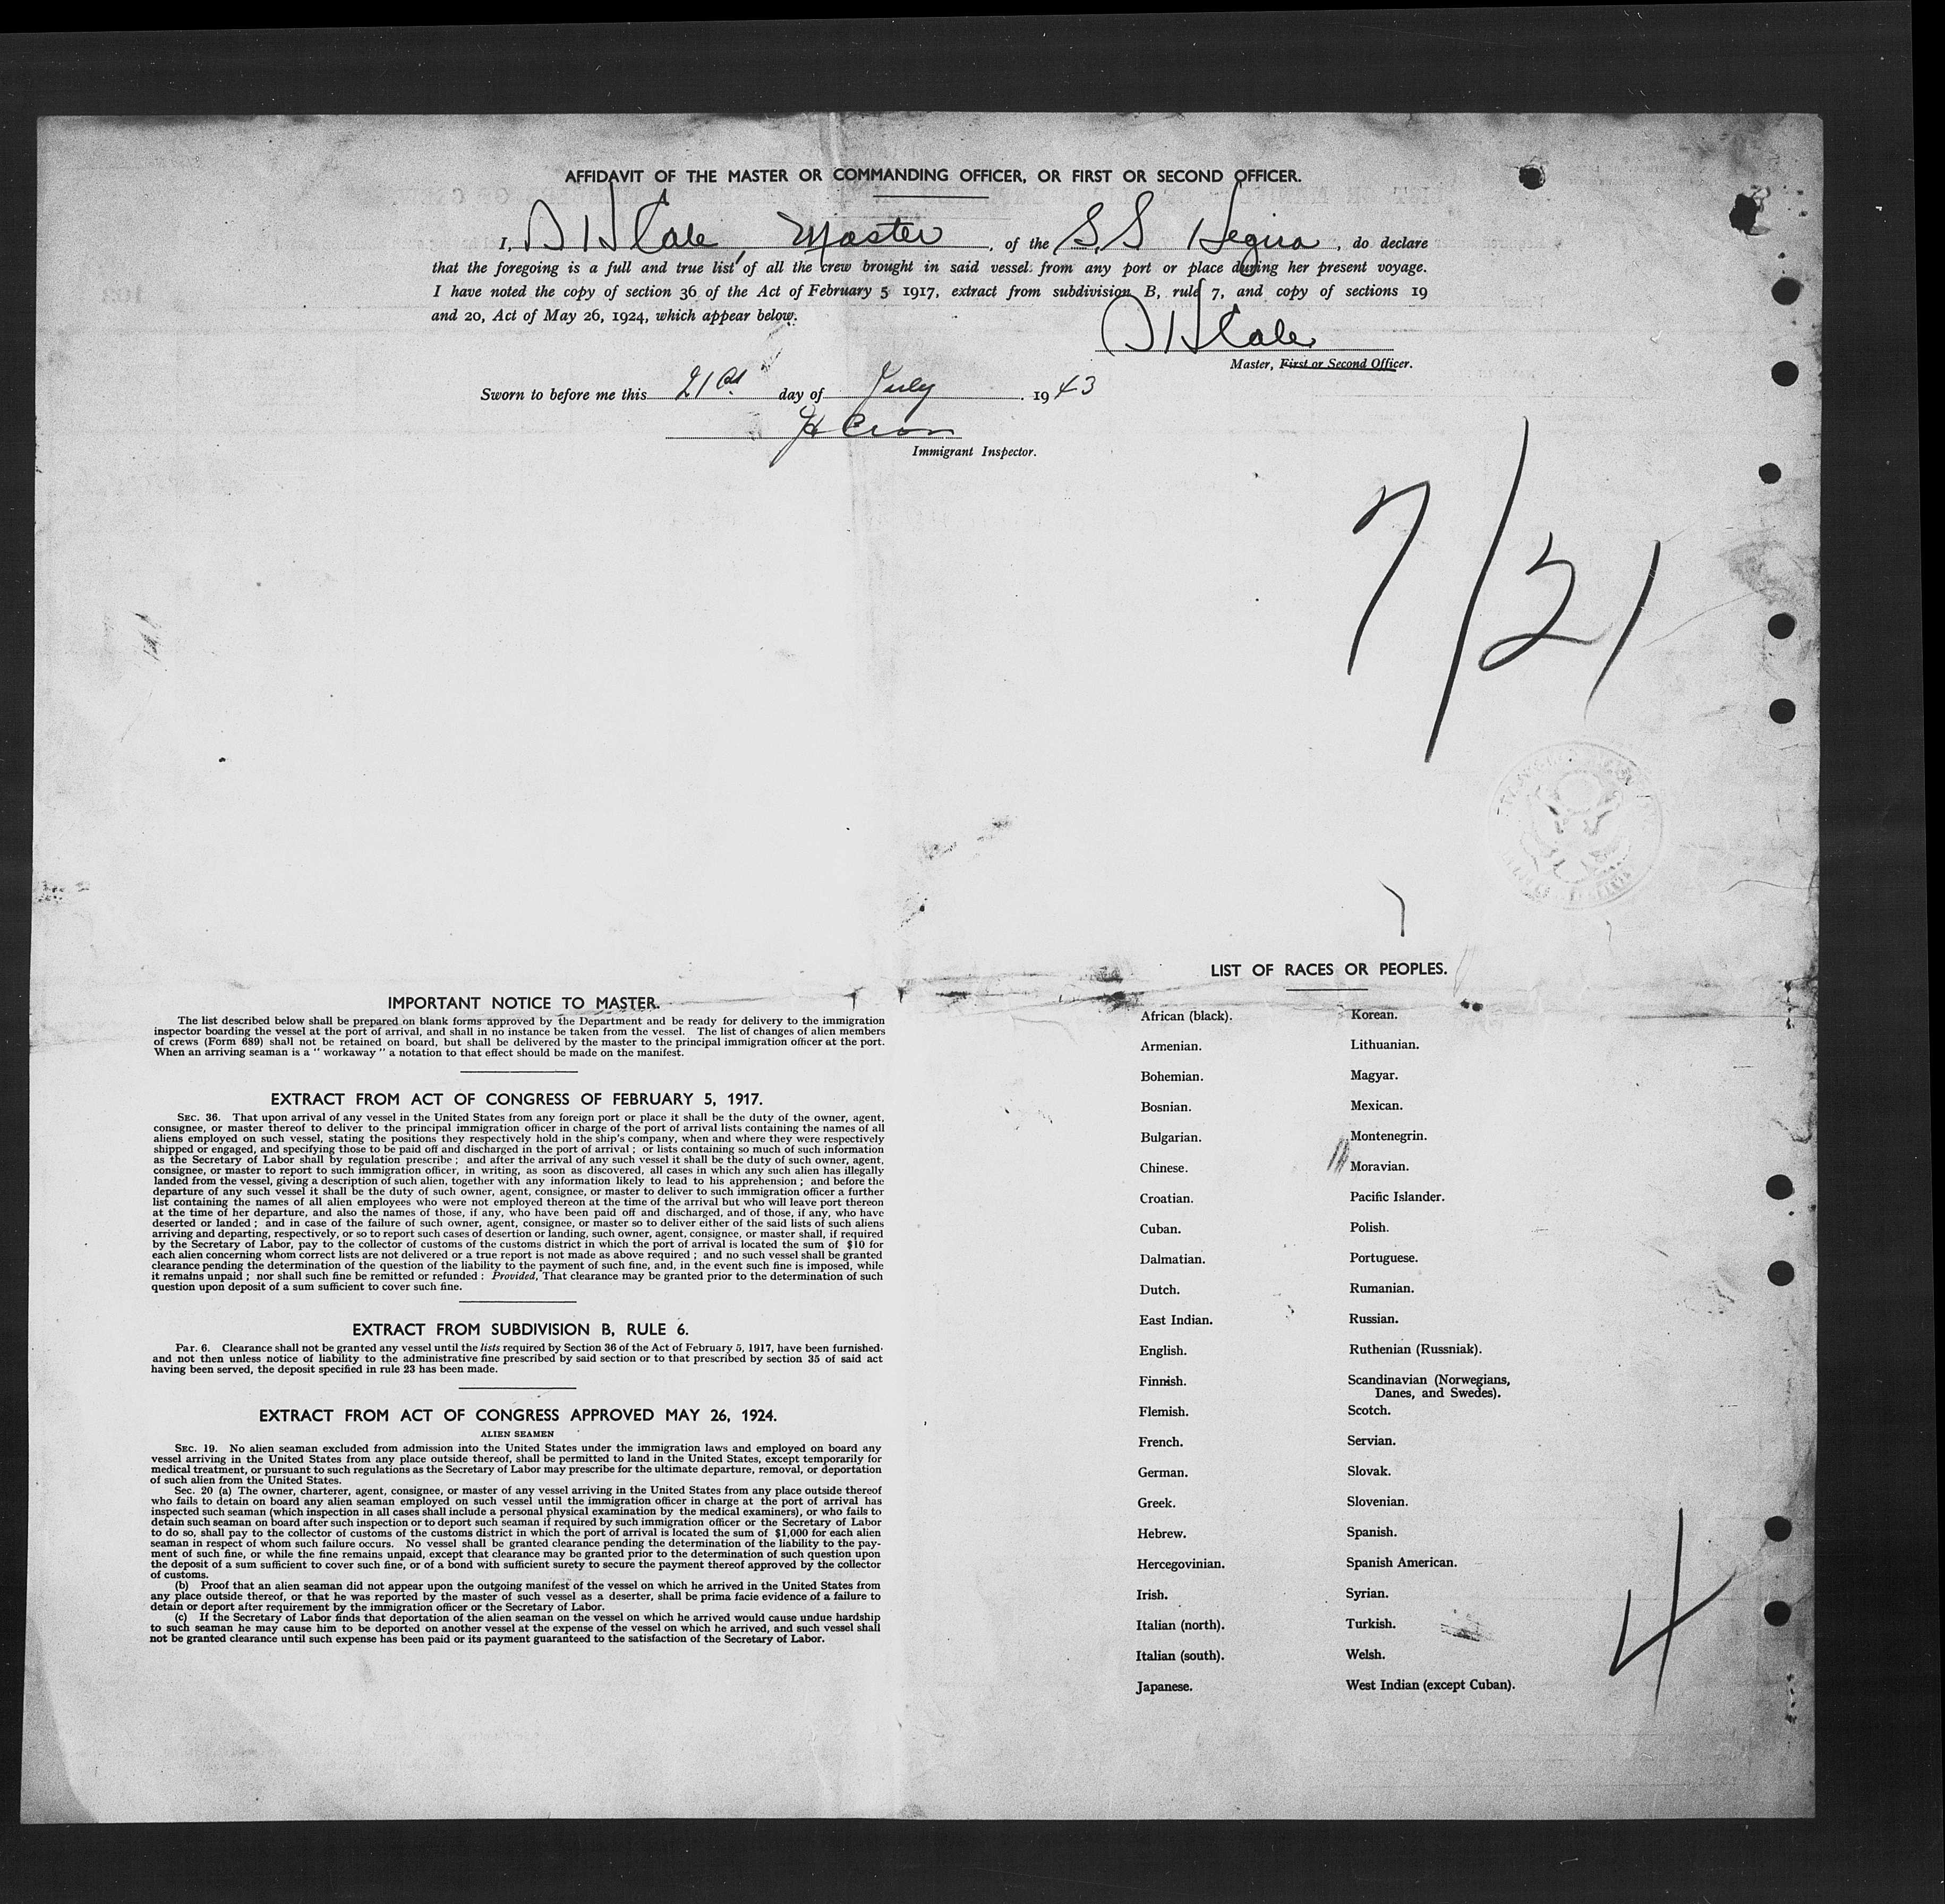 AFFIDAVIT OF THE MASTER OR COMMANDING OFFICER, OR FIRST OR SECOND OFFICER.
I, D H Cole, Master, of the S.S. , do declare
that the foregoing is a full and true list of all the crew brought in said vessel from any port or place during her present voyage.
I have noted the copy of section 36 of the Act of February 5 1917, extract from subdivision B, rule 7, and copy of sections 19
and 20, Act of May 26, 1924, which appear below.
D H Cole
Master, First or Second Officer.
Sworn to before me this 21st day of July . 1943
Immigrant Inspector.
7/21
IMPORTANT NOTICE TO MASTER.
The list described below shall be prepared on blank forms approved by the Department and be ready for delivery to the immigration
inspector boarding the vessel at the port of arrival, and shall in no instance be taken from the vessel. The list of changes of alien members
of crews (Form 689) shall not be retained on board, but shall be delivered by the master to the principal immigration officer at the port.
When an arriving seaman is a " workaway " a notation to that effect should be made on the manifest.
EXTRACT FROM ACT OF CONGRESS OF FEBRUARY 5, 1917.
SEC. 36. That upon arrival of any vessel in the United States from any foreign port or place it shall be the duty of the owner, agent,
consignee, or master thereof to deliver to the principal immigration officer in charge of the port of arrival lists containing the names of all
aliens employed on such vessel, stating the positions they respectively hold in the ship's company, when and where they were respectively
shipped or engaged, and specifying those to be paid off and discharged in the port of arrival ; or lists containing so much of such information
as the Secretary of Labor shall by regulation prescribe ; and after the arrival of any such vessel it shall be the duty of such owner, agent,
consignee, or master to report to such immigration officer, in writing, as soon as discovered, all cases in which any such alien has illegally
landed from the vessel, giving a description of such alien, together with any information likely to lead to his apprehension ; and before the
departure of any such vessel it shall be the duty of such owner, agent, consignee, or master to deliver to such immigration officer a further
list containing the names of all alien employees who were not employed thereon at the time of the arrival but who will leave port thereon
at the time of her departure, and also the names of those, if any, who have been paid off and discharged, and of those, if any, who have
deserted or landed ; and in case of the failure of such owner, agent, consignee, or master so to deliver either of the said lists of such aliens
arriving and departing, respectively, or so to report such cases of desertion or landing, such owner, agent, consignee, or master shall, if required
by the Secretary of Labor, pay to the collector of customs of the customs district in which the port of arrival is located the sum of $10 for
each alien concerning whom correct lists are not delivered or a true report is not made as above required ; and no such vessel shall be granted
clearance pending the determination of the question of the liability to the payment of such fine, and, in the event such fine is imposed, while
it remains unpaid ; nor shall such fine be remitted or refunded : Provided, That clearance may be granted prior to the determination of such
question upon deposit of a sum sufficient to cover such fine.
EXTRACT FROM SUBDIVISION B, RULE 6.
Par. 6. Clearance shall not be granted any vessel until the lists required by Section 36 of the Act of February 5, 1917, have been furnished
and not then unless notice of liability to the administrative fine prescribed by said section or to that prescribed by section 35 of said act
having been served, the deposit specified in rule 23 has been made.
EXTRACT FROM ACT OF CONGRESS APPROVED MAY 26, 1924.
ALIEN SEAMEN
SEC. 19. No alien seaman excluded from admission into the United States under the immigration laws and employed on board any
vessel arriving in the United States from any place outside thereof, shall be permitted to land in the United States, except temporarily for
medical treatment, or pursuant to such regulations as the Secretary of Labor may prescribe for the ultimate departure, removal, or deportation
of such alien from the United States.
Sec. 20 (a) The owner, charterer, agent, consignee, or master of any vessel arriving in the United States from any place outside thereof
who fails to detain on board any alien seaman employed on such vessel until the immigration officer in charge at the port of arrival has
inspected such seaman (which inspection in all cases shall include a personal physical examination by the medical examiners), or who fails to
detain such seaman on board after such inspection or to deport such seaman if required by such immigration officer or the Secretary of Labor
to do so, shall pay to the collector of customs of the customs district in which the port of arrival is located the sum of $1,000 for each alien
seaman in respect of whom such failure occurs. No vessel shall be granted clearance pending the determination of the liability to the pay-
ment of such fine, or while the fine remains unpaid, except that clearance may be granted prior to the determination of such question upon
the deposit of a sum sufficient to cover such fine, or of a bond with sufficient surety to secure the payment thereof approved by the collector
of customs.
(b) Proof that an alien seaman did not appear upon the outgoing manifest of the vessel on which he arrived in the United States from
any place outside thereof, or that he was reported by the master of such vessel as a deserter, shall be prima facie evidence of a failure to
detain or deport after requirement by the immigration officer or the Secretary of Labor.
(c) If the Secretary of Labor finds that deportation of the alien seaman on the vessel on which he arrived would cause undue hardship
to such seaman he may cause him to be deported on another vessel at the expense of the vessel on which he arrived, and such vessel shall
not be granted clearance until such expense has been paid or its payment guaranteed to the satisfaction of the Secretary of Labor.
LIST OF RACES OR PEOPLES.
African (black).
Armenian.
Bohemian.
Bosnian.
Bulgarian.
Chinese.
Croatian.
Cuban.
Dalmatian.
Dutch.
East Indian.
English.
Finnish.
Flemish.
French.
German.
Greek.
Hebrew.
Hercegovinian.
Irish.
Italian (north).
Italian (south).
Japanese.
Korean.
Lithuanian.
Magyar.
Mexican.
Montenegrin.
Moravian.
Pacific Islander.
Polish.
Portuguese.
Rumanian.
Russian.
Ruthenian (Russniak).
Scandinavian (Norwegians,
Danes, and Swedes).
Scotch.
Servian.
Slovak.
Slovenian.
Spanish.
Spanish American.
Syrian.
Turkish.
Welsh.
West Indian (except Cuban).
4